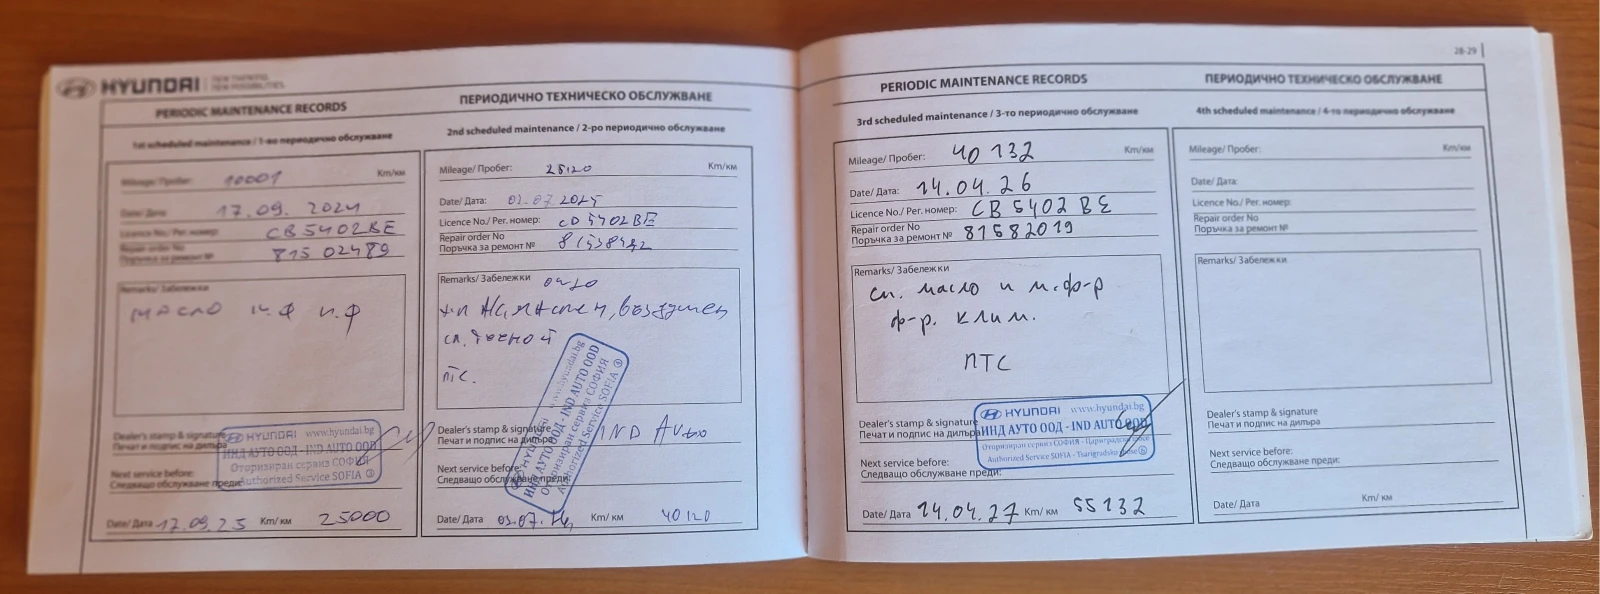 HYUNDAI NEW THINKING. NEW POSSIBILITIES.
PERIODIC MAINTENANCE RECORDS
ПЕРИОДИЧНО ТЕХНИЧЕСКО ОБСЛУЖВАНЕ
1st scheduled maintenance / 1-во периодично обслужване
Mileage/ Пробег: 10001 Km/км
Date/ Дата: 17.09.2024
Licence No./ Рег. номер: CB5402BE
Repair order No
Поръчка за ремонт № 81502489
Remarks/ Забележки
масло м.ф п.ф
Dealer's stamp & signature
Печат и подпис на дилъра
HYUNDAI www.hyundai.bg
ИНД АУТО ООД - IND AUTO OOD
Оторизиран сервиз СОФИЯ
Authorized Service SOFIA
Next service before:
Следващо обслужване преди:
Date/ Дата 17.09.25 Km/ км 25000
2nd scheduled maintenance / 2-ро периодично обслужване
Mileage/ Пробег: 25120 Km/км
Date/ Дата: 02.07.2025
Licence No./ Рег. номер: CD5402BE
Repair order No
Поръчка за ремонт №
Remarks/ Забележки
въздушен
ПТС.
Dealer's stamp & signature
Печат и подпис на дилъра IND Auto
HYUNDAI www.hyundai.bg
ИНД АУТО ООД - IND AUTO OOD
Оторизиран сервиз СОФИЯ
Authorized Service SOFIA
Next service before:
Следващо обслужване преди:
Date/ Дата Km/ км 40120
28-29
PERIODIC MAINTENANCE RECORDS
ПЕРИОДИЧНО ТЕХНИЧЕСКО ОБСЛУЖВАНЕ
3rd scheduled maintenance / 3-то периодично обслужване
Mileage/ Пробег: 40 132 Km/км
Date/ Дата: 14.04.26
Licence No./ Рег. номер: CB 5402 BE
Repair order No
Поръчка за ремонт № 81582019
Remarks/ Забележки
см. масло и м.ф-р
ф-р. клим.
ПТС
Dealer's stamp & signature
Печат и подпис на дилъра
HYUNDAI www.hyundai.bg
ИНД АУТО ООД - IND AUTO OOD
Оторизиран сервиз СОФИЯ - Цариградско шосе
Authorized Service SOFIA - Tsarigradsko shose
Next service before:
Следващо обслужване преди:
Date/ Дата 14.04.27 Km/ км 55132
4th scheduled maintenance / 4-то периодично обслужване
Mileage/ Пробег: Km/км
Date/ Дата:
Licence No./ Рег. номер:
Repair order No
Поръчка за ремонт №
Remarks/ Забележки
Dealer's stamp & signature
Печат и подпис на дилъра
Next service before:
Следващо обслужване преди:
Date/ Дата Km/ км